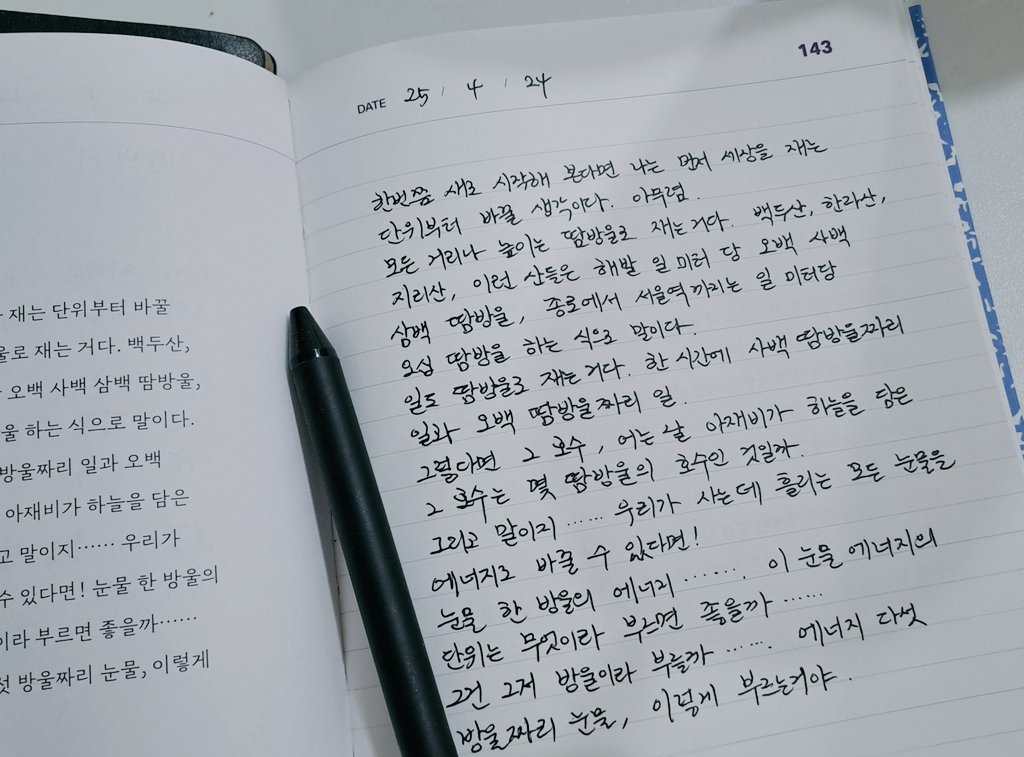 재는 단위부터 바꿀
로 재는 거다. 백두산,
오백 사백 삼백 땀방울,
울 하는 식으로 말이다.
방울짜리 일과 오백
아재비가 하늘을 담은
고 말이지…… 우리가
수 있다면! 눈물 한 방울의
이라 부르면 좋을까……
섯 방울짜리 눈물, 이렇게
143
DATE 25 / 4 / 24
한번쯤 새로 시작해 본다면 나는 먼저 세상을 재는
단위부터 바꿀 생각이다. 아무렴.
모든 거리나 높이는 땀방울로 재는 거다. 백두산, 한라산,
지리산, 이런 산들은 해발 일 미터 당 오백 사백
삼백 땀방울, 종로에서 서울역까지는 일 미터당
오십 땀방울 하는 식으로 말이다.
일도 땀방울로 재는 거다. 한 시간에 사백 땀방울짜리
일과 오백 땀방울짜리 일.
그렇다면 그 호수, 어느 날 아재비가 하늘을 담은
그 호수는 몇 땀방울의 호수인 것일까.
그리고 말이지 …… 우리가 사는데 흘리는 모든 눈물을
에너지로 바꿀 수 있다면!
눈물 한 방울의 에너지 ……. 이 눈물 에너지의
단위는 무엇이라 부르면 좋을까 ……
그건 그저 방울이라 부를까 ……. 에너지 다섯
방울짜리 눈물, 이렇게 부르는거야.